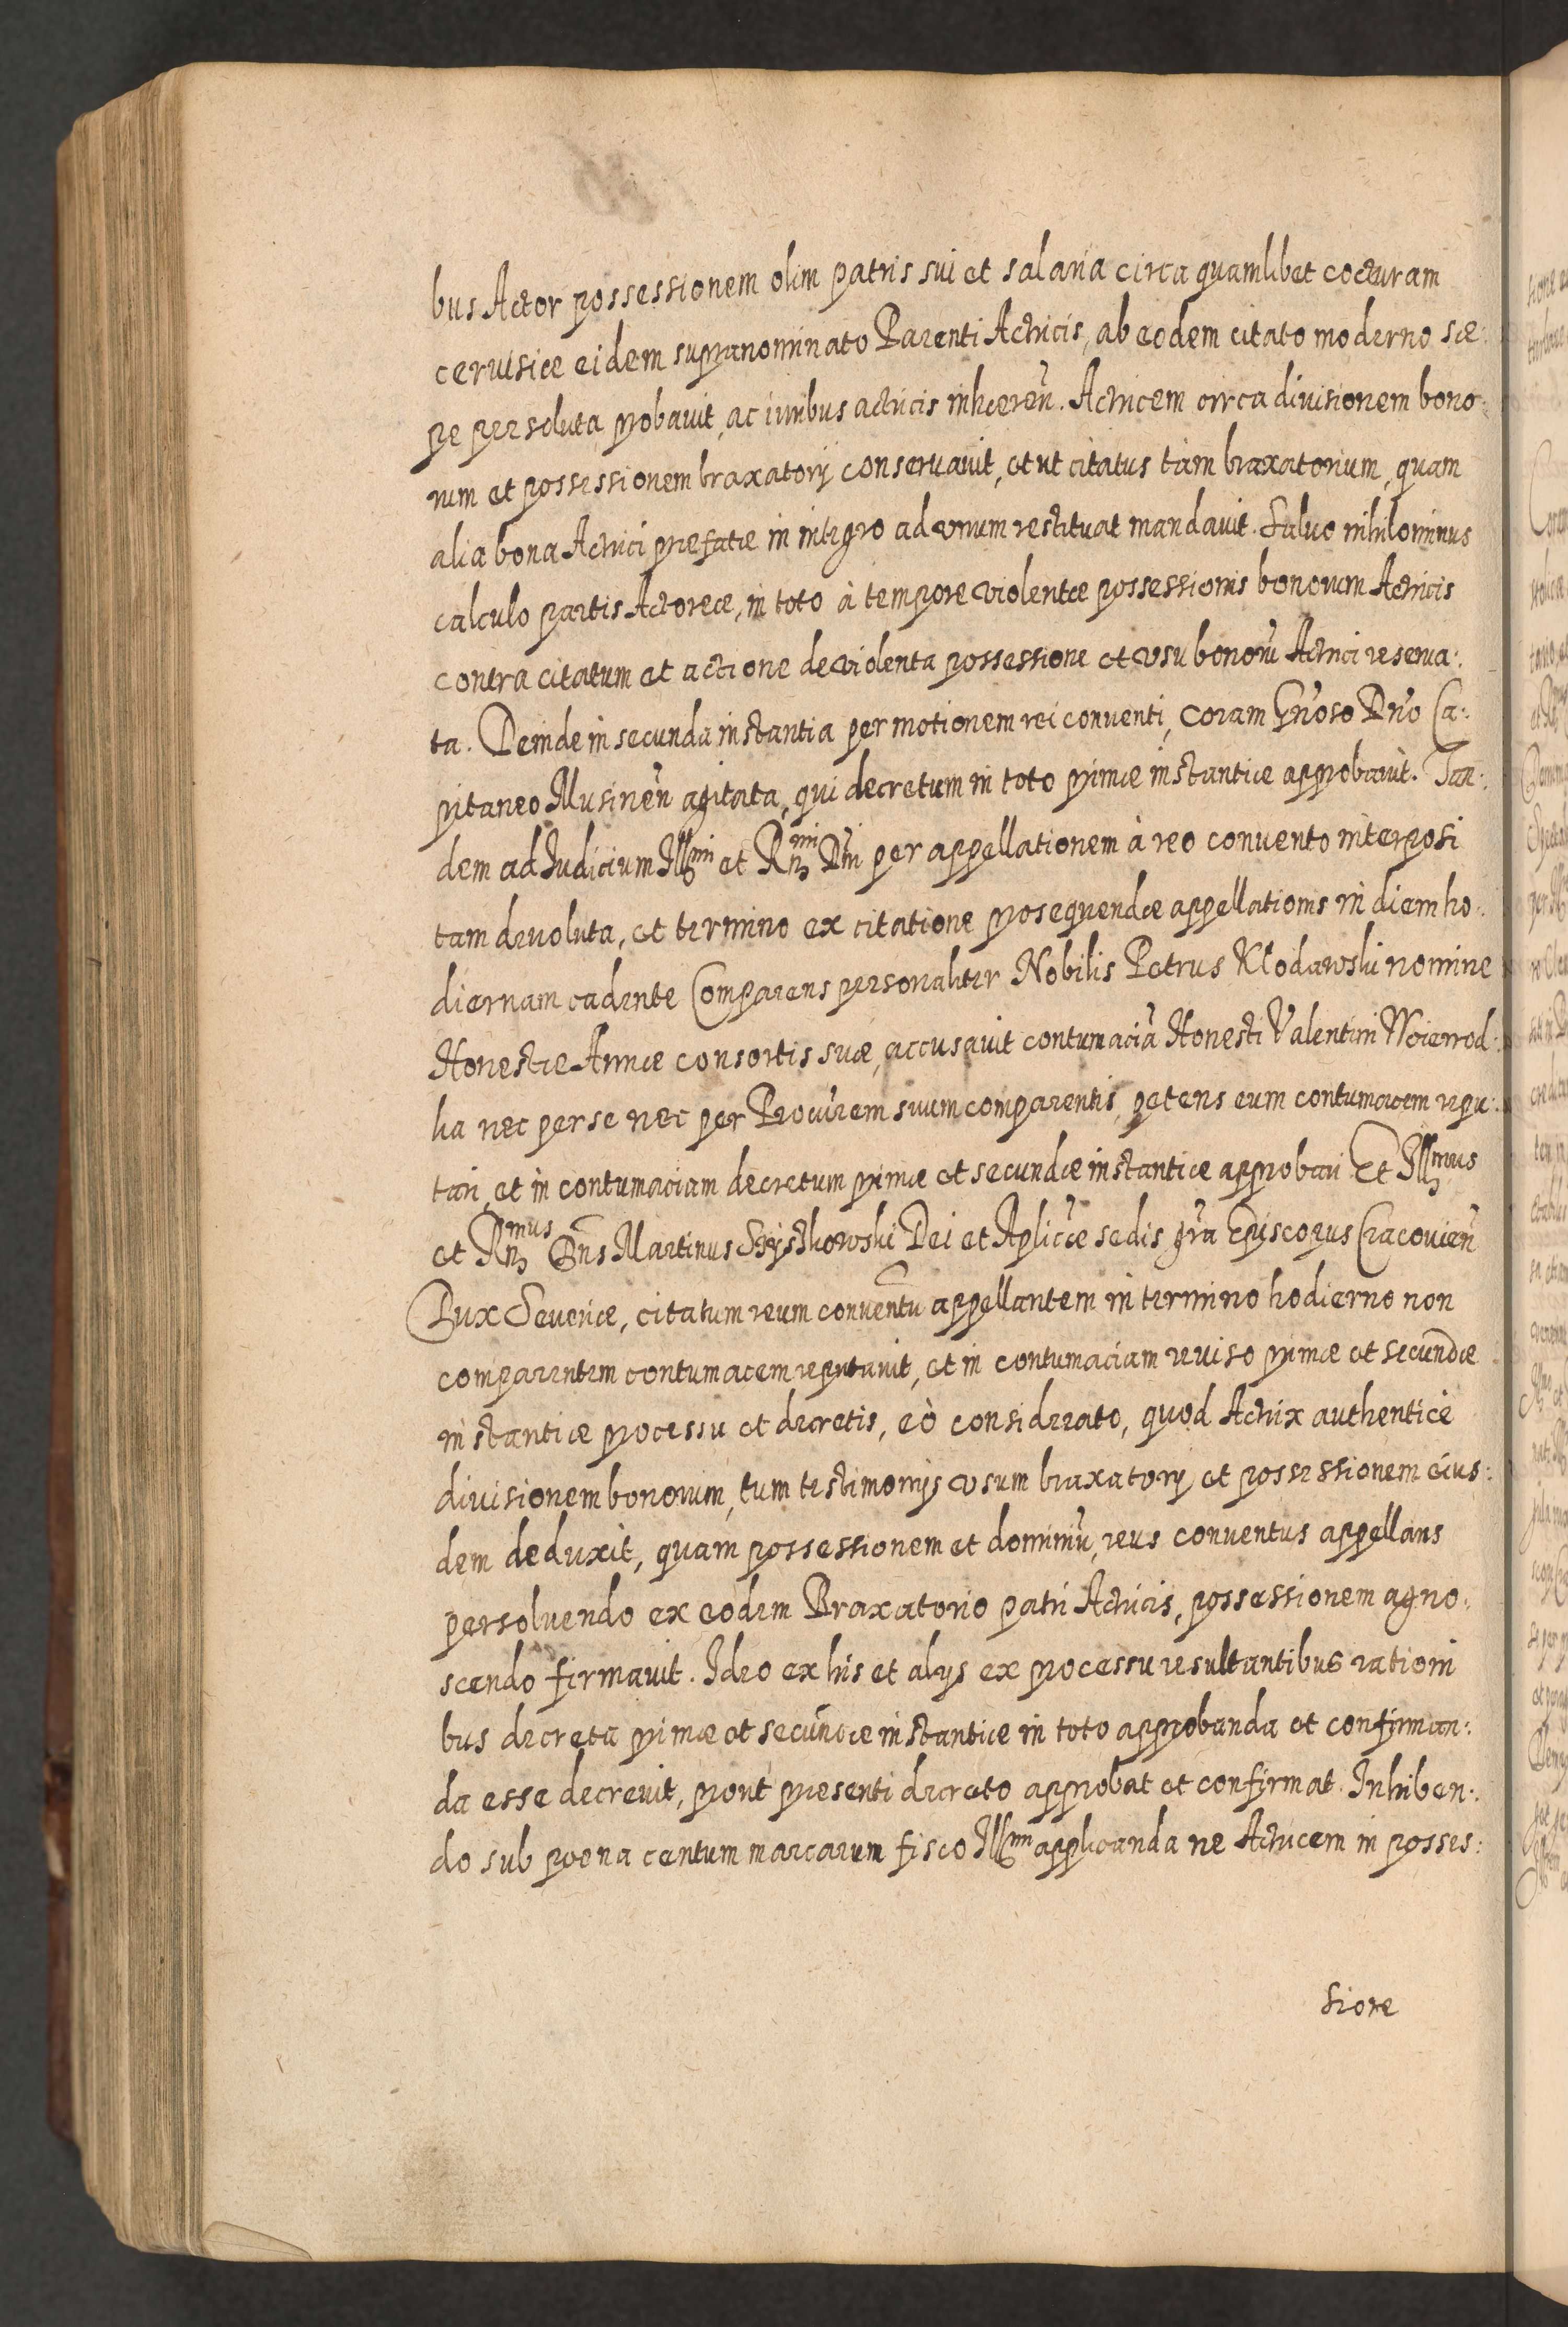 bus Actor possessionem olim patris sui et salaria circa quamlibet cocturam
cervisiæ eidem supranominato Parenti Actricis, ab eodem citato moderno sæ:
pe persoluta probavit, ac iuribus actricis inhæreñ. Actricem circa divisionem bono:
rum et possessionem braxatorij conservavit, et ut citatus tàm braxatorium, quam
alia bona Actrici præfatæ in integro ad vnum restituat mandavit. Salvo nihilominus
calculo partis Actoreæ, in toto à tempore violentæ possessionis bonorum Actricis
contra citatum et actione de violenta possessione et vsu bonorũ Actrici reserva:
ta. Deinde in secunda instantia per motionem rei conventi, coram Gñoso Dño Ca:
pitaneo Musineñ agitata, qui decretum in toto primæ instantiæ approbavit. Tan:
dem ad Iudicium Illmi et Rmi Dni per appellationem à reo convento interposi
tam devoluta, et termino ex citatione prosequendæ appellationis in diem ho:
diernam cadente Comparens personaliter Nobilis Petrus Kłodawski nomine
Honestæ Annæ consortis suæ, accusavit contumaciã Honesti Valentini Woiewod:
ka nec per se nec per Procũrem suum comparentis, petens eum contumacem repu:
tari, et in contumaciam decretum primæ et secundæ instantiæ approbari Et Illmus
et Rmus Dns Martinus Szyszkowski Dei et Aplicæ sedis gra Episcopus Cracovieñ
Dux Severiæ, citatum reum conventũ appellantem in termino hodierno non
comparentem contumacem reputavit, et in contumaciam reviso primæ et secundæ
instantiæ processu et decretis, eò considerato, quod Actrix authenticè
divisionem bonorum, tum testimonijs vsum braxatorij et possessionem eius:
dem deduxit, quam possessionem et dominiũ, reus conventus appellans
persolvendo ex eodem Braxatorio patri Actricis, possessionem agno:
scendo firmavit. Ideo ex his et alijs ex processu resultantibus rationi
bus decreta primæ et secundæ instantiæ in toto approbanda et confirman:
da esse decrevit, prout præsenti decreto approbat et confirmat. Inhiben:
do sub poena centum marcarum fisco Illmi applicanda ne Actricem in posses:
sione